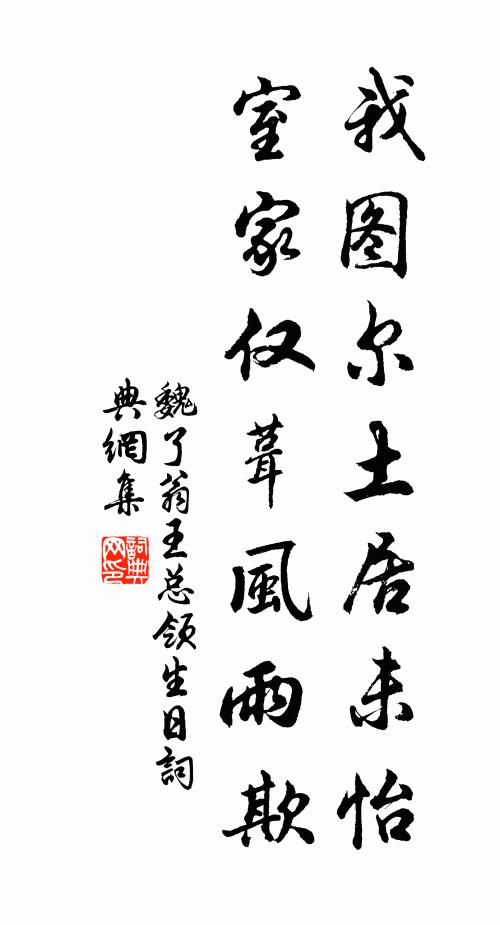 我图尔土居未怡
室家仅葺風雨欺
魏了翁王总领生日詞
典網集
詞典网印